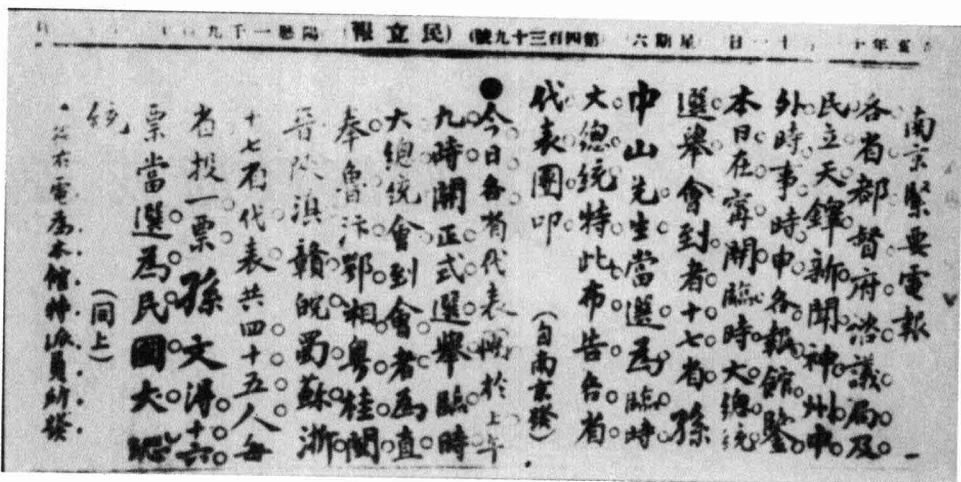 年十一日 星期六 (第四百三十九號) (民立報) 陽曆一千九
南京緊要電報 一
各省都督府諮議局及
民立天鐸新聞神州申
外時事時申各報館鑒
本日在甯開臨時大總統
選舉會到者十七省孫
中山先生當選為臨時
大總統特此布告各省
代表團叩 (自南京發)
●今日各省代表團於上午
九時開正式選舉臨時
大總統會到會者為直
奉魯汴鄂湘粵桂閩
晉陝滇贛皖蜀蘇浙
十七省代表共四十五人每
省投一票孫文得十六
票當選為民國大總
統 (同上)
右電為本館特派員所發